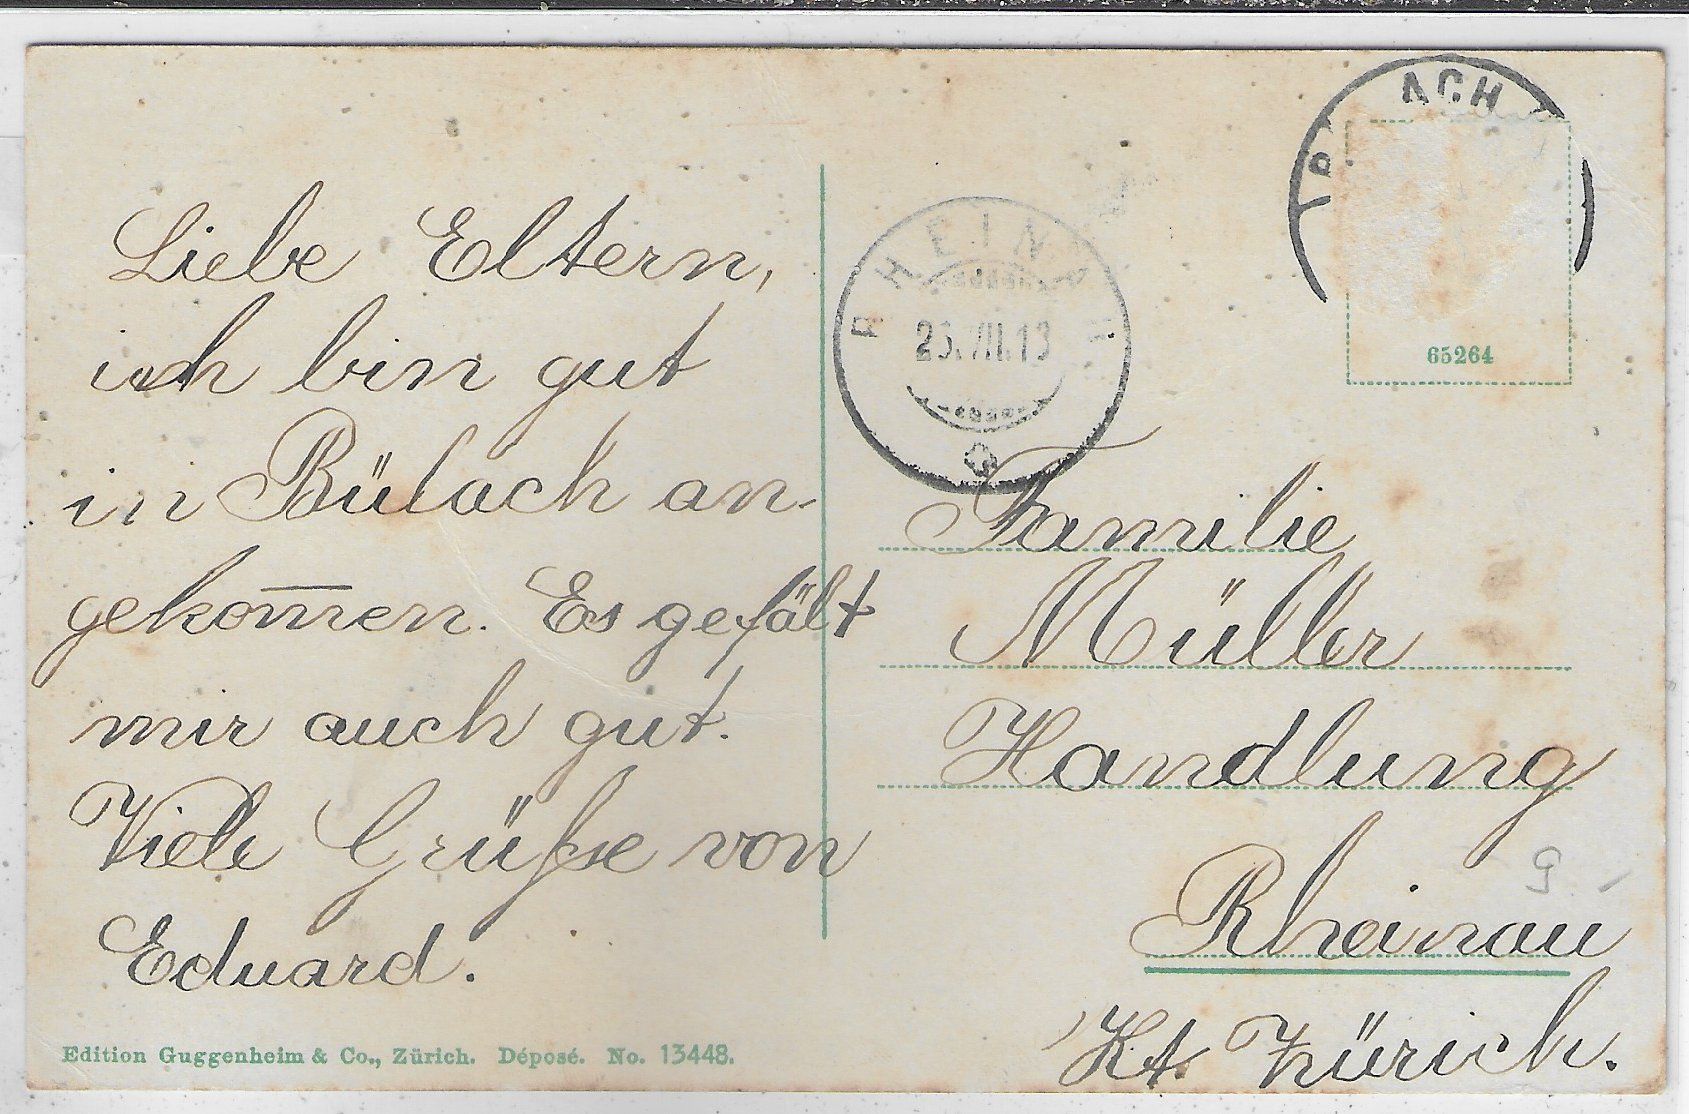 Liebe Eltern,
ich bin gut
in Bülach an-
gekom̅en. Es gefält
mir auch gut.
Viele Grüße von
Eduard.
Edition Guggenheim & Co., Zürich. Déposé. No. 13448.
RHEINAU
23.VII.13
ACH
65264
Familie
Müller
Handlung
Rheinau
Kt. Zürich.